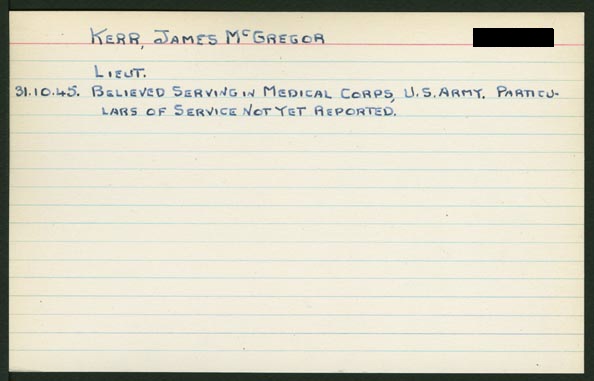 KERR, JAMES McGREGOR
LIEUT.
31.10.45. BELIEVED SERVING IN MEDICAL CORPS, U.S. ARMY. PARTICU-
LARS OF SERVICE NOT YET REPORTED.